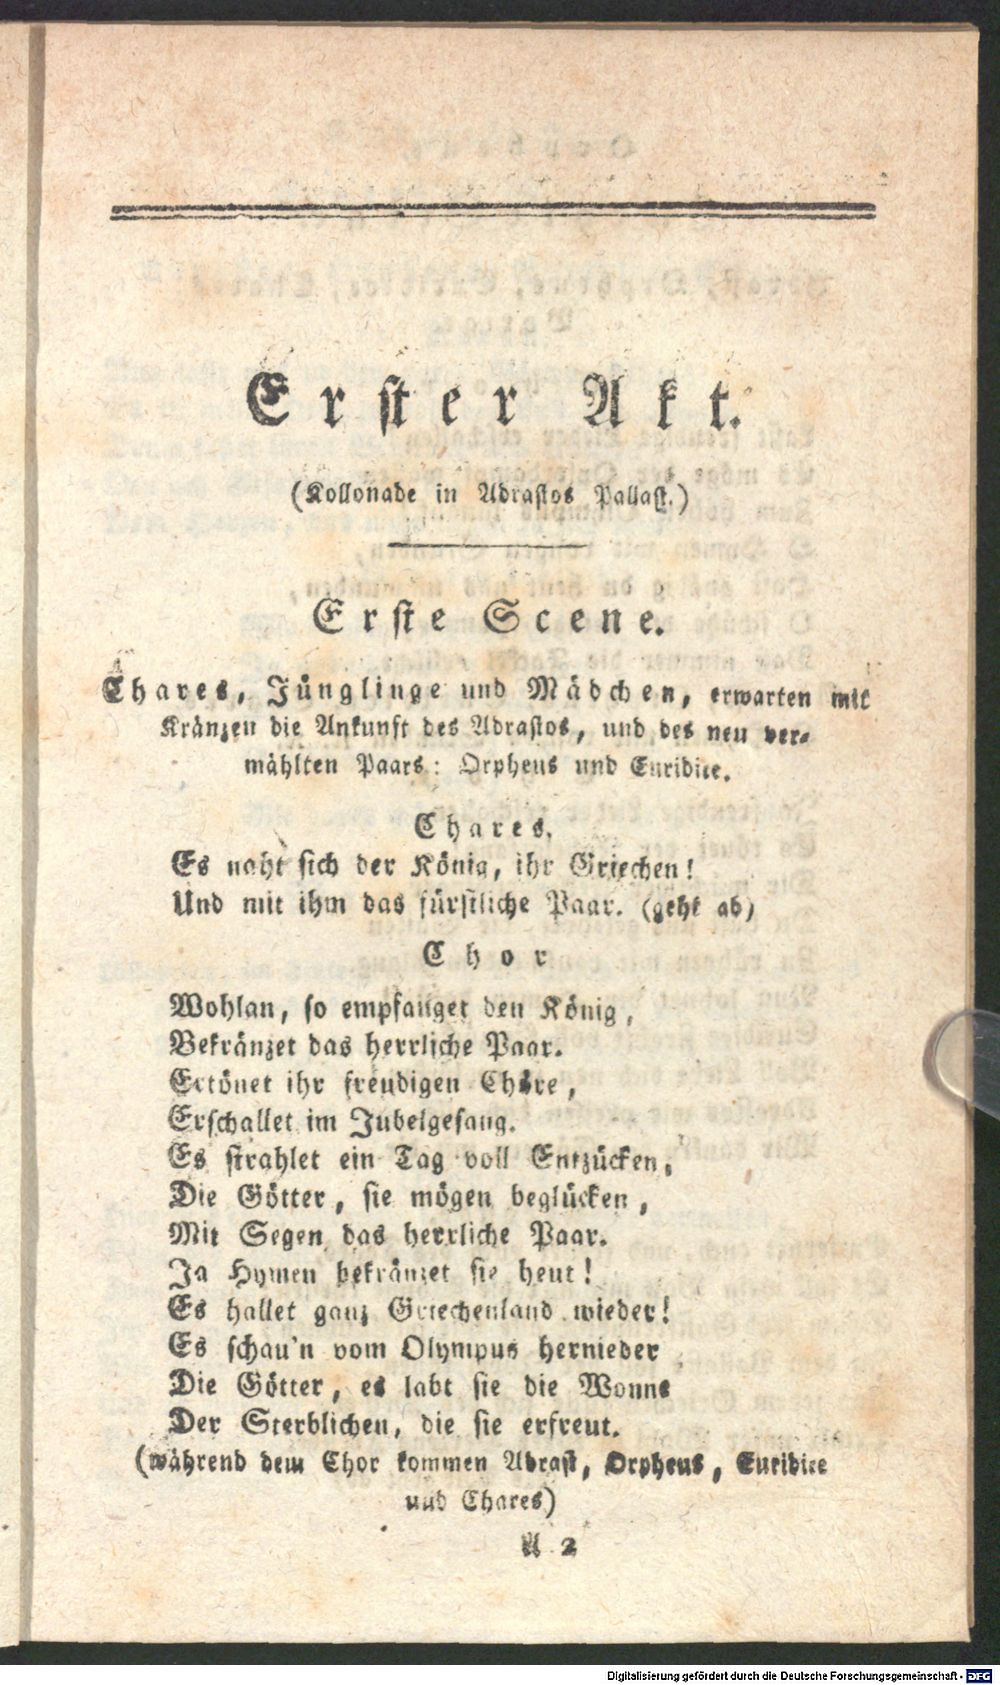 Erster Akt.
(Kollonade in Adrastos Pallast.)
Erste Scene.
Chares, Jünglinge und Mädchen, erwarten mit
Kränzen die Ankunft des Adrastos, und des neu ver-
mählten Paars: Orpheus und Euridice.
Chares.
Es naht sich der König, ihr Griechen!
Und mit ihm das fürstliche Paar. (geht ab)
Chor
Wohlan, so empfanget den König,
Bekränzet das herrliche Paar.
Ertönet ihr freudigen Chöre,
Erschallet im Jubelgesang.
Es strahlet ein Tag voll Entzücken,
Die Götter, sie mögen beglücken,
Mit Segen das herrliche Paar.
Ja Hymen bekränzet sie heut!
Es hallet ganz Griechenland wieder!
Es schau'n vom Olympus hernieder
Die Götter, es labt sie die Wonne
Der Sterblichen, die sie erfreut.
(während dem Chor kommen Adrast, Orpheus, Euridice
und Chares)
A 2
Digitalisierung gefördert durch die Deutsche Forschungsgemeinschaft - DFG